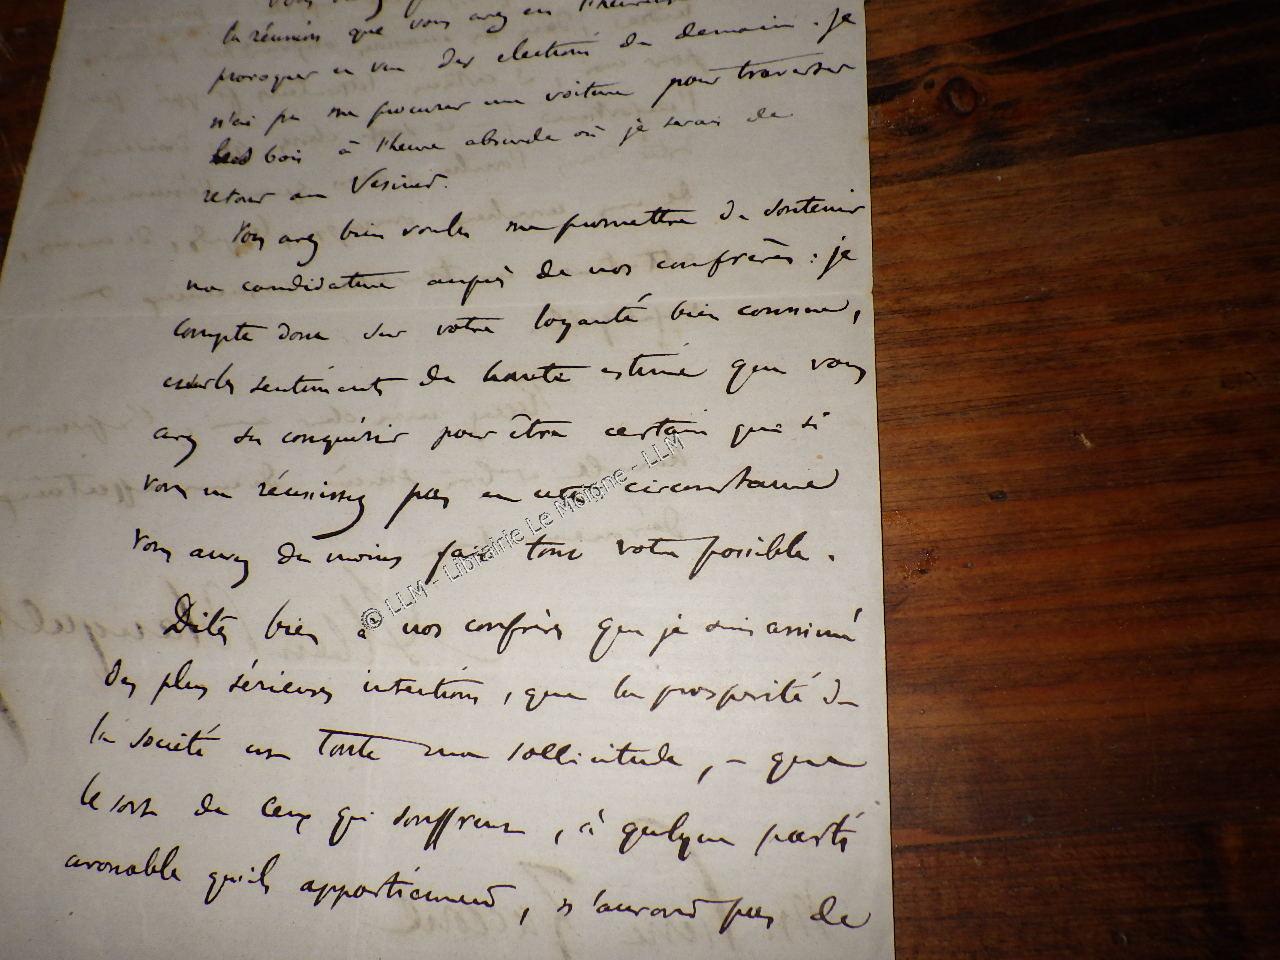 la réunion que vous avez eu l'heureuse
provoquer en vue des élections de demain. Je
n'ai pu me procurer une voiture pour traverser
le bois à l'heure absurde où je serais de
retour au Vésinet.
Vous avez bien voulu me promettre de soutenir
ma candidature auprès de nos confrères : je
compte donc sur votre loyauté bien connue,
et sur les sentiments de haute estime que vous
avez su conquérir pour être certain que si
vous ne réussissez pas en cette circonstance
vous aurez du moins fait tout votre possible.
Dites bien à nos confrères que je suis animé
des plus sérieuses intentions, que la prospérité de
la société est toute ma sollicitude, – que
le sort de ceux qui souffrent, à quelque parti
avouable qu'ils appartiennent, n'auront pas de
@ LLM - Librairie Le Moigne - LLM